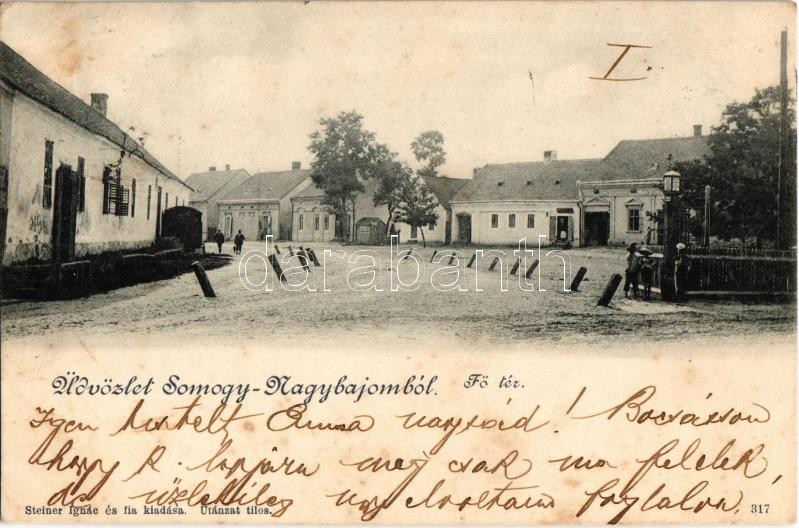 I.
darabanth
Üdvözlet Somogy-Nagybajomból. Fő tér.
Igen tisztelt Emma nagysád! Bocsásson
hogy k. lapjára még csak ma felelek,
de üzletileg úgy el voltam foglalva,
Steiner Ignác és fia kiadása. Utánzat tilos.
317